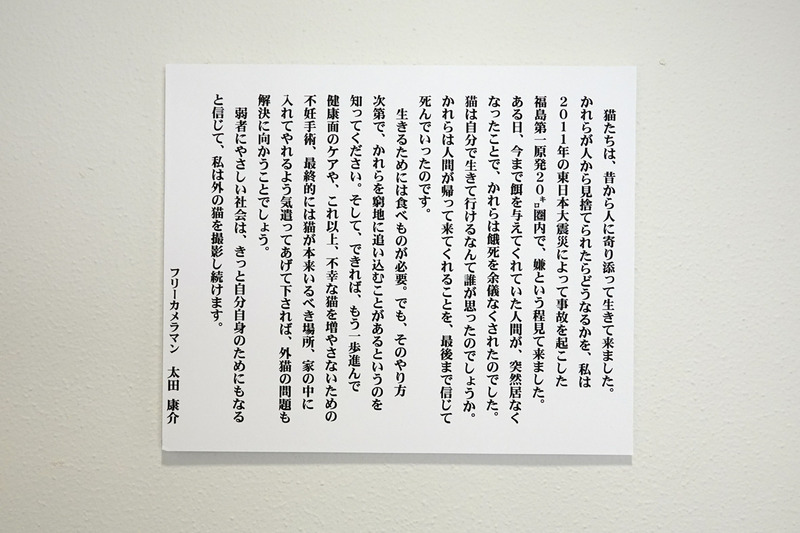 猫たちは、昔から人に寄り添って生きて来ました。
かれらが人から見捨てられたらどうなるかを、私は
2011年の東日本大震災によって事故を起こした
福島第一原発20㌔圏内で、嫌という程見て来ました。
ある日、今まで餌を与えてくれていた人間が、突然居なく
なったことで、かれらは餓死を余儀なくされたのでした。
猫は自分で生きて行けるなんて誰が思ったのでしょうか。
かれらは人間が帰って来てくれることを、最後まで信じて
死んでいったのです。
生きるためには食べものが必要。でも、そのやり方
次第で、かれらを窮地に追い込むことがあるというのを
知ってください。そして、できれば、もう一歩進んで
健康面のケアや、これ以上、不幸な猫を増やさないための
不妊手術、最終的には猫が本来いるべき場所、家の中に
入れてやれるよう気遣ってあげて下されば、外猫の問題も
解決に向かうことでしょう。
弱者にやさしい社会は、きっと自分自身のためにもなる
と信じて、私は外の猫を撮影し続けます。
フリーカメラマン 太田 康介